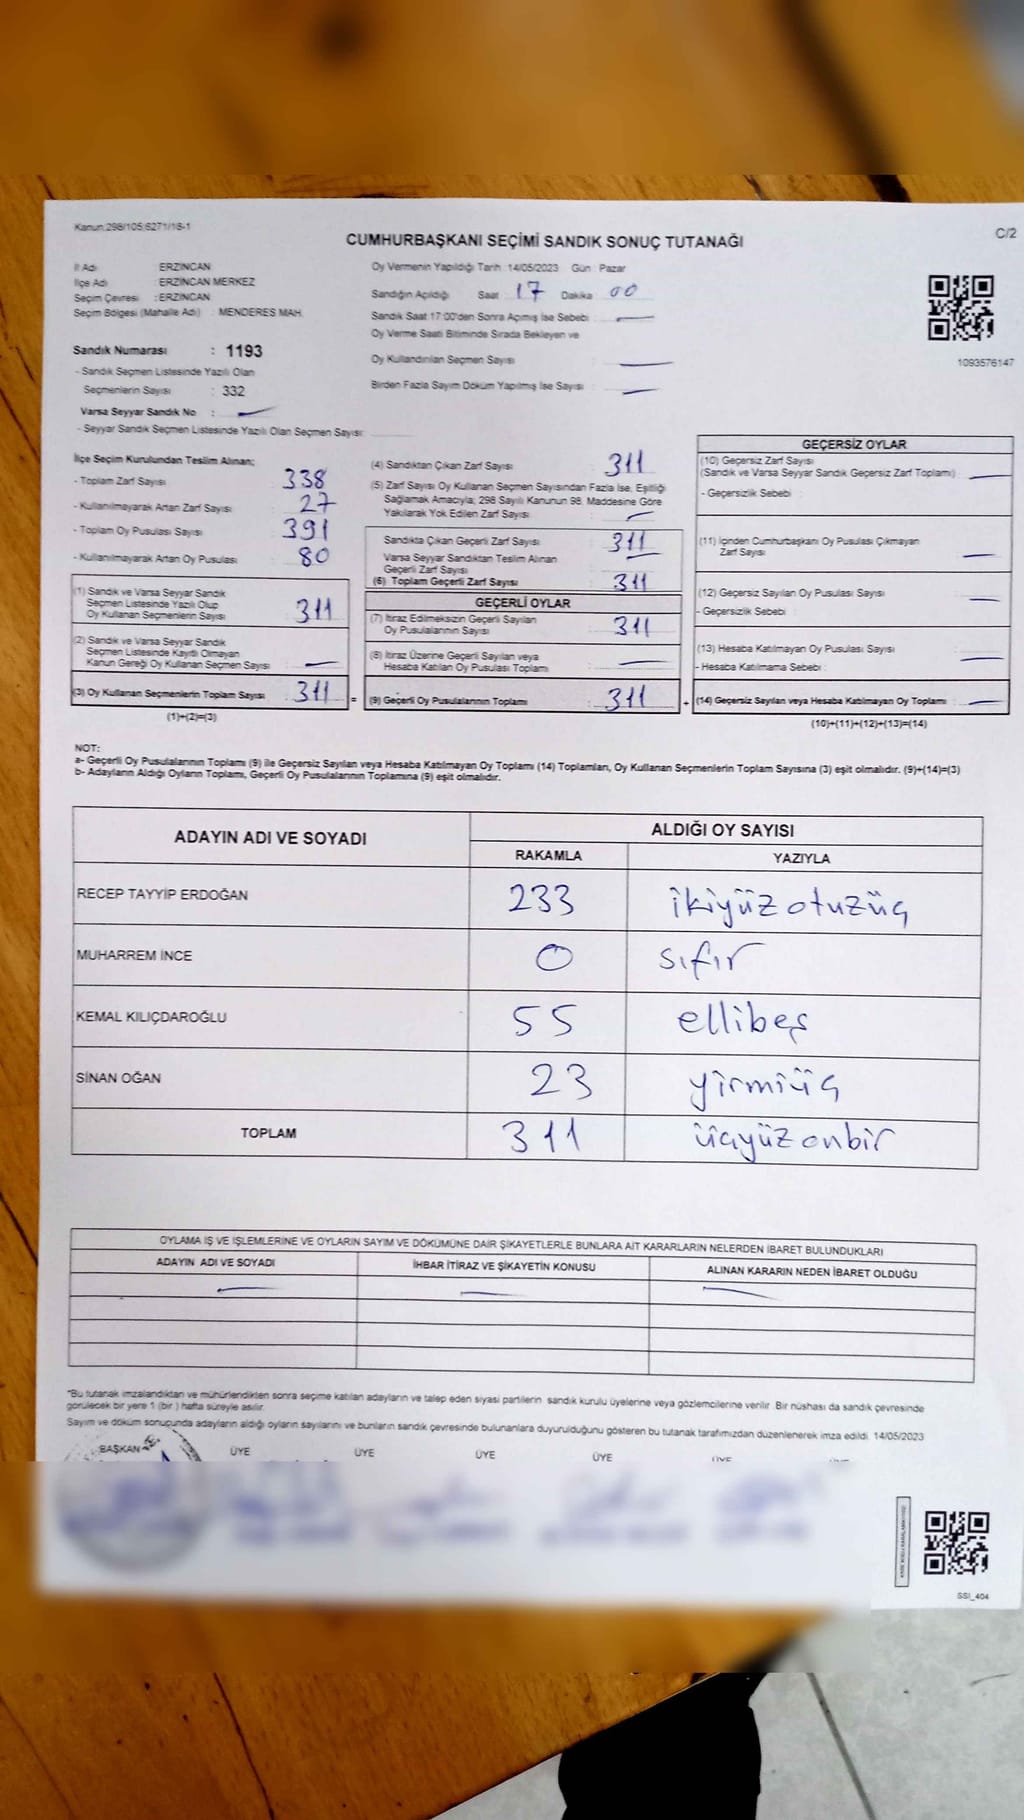 Kanun:298/105;6271/16-1
C/2
CUMHURBAŞKANI SEÇİMİ SANDIK SONUÇ TUTANAĞI
İl Adı : ERZİNCAN
İlçe Adı : ERZİNCAN MERKEZ
Seçim Çevresi : ERZİNCAN
Seçim Bölgesi (Mahalle Adı) : MENDERES MAH.
Sandık Numarası : 1193
- Sandık Seçmen Listesinde Yazılı Olan
Seçmenlerin Sayısı : 332
Varsa Seyyar Sandık No :
- Seyyar Sandık Seçmen Listesinde Yazılı Olan Seçmen Sayısı:
Oy Vermenin Yapıldığı Tarih: 14/05/2023 Gün Pazar
Sandığın Açıldığı Saat 17 Dakika 00
Sandık Saat 17:00'den Sonra Açmış İse Sebebi :
Oy Verme Saati Bitiminde Sırada Bekleyen ve
Oy Kullandırılan Seçmen Sayısı :
Birden Fazla Sayım Döküm Yapılmış İse Sayısı :
1093576147
İlçe Seçim Kurulundan Teslim Alınan;
- Toplam Zarf Sayısı : 338
- Kullanılmayarak Artan Zarf Sayısı : 27
- Toplam Oy Pusulası Sayısı : 391
- Kullanılmayarak Artan Oy Pusulası : 80
(1) Sandık ve Varsa Seyyar Sandık
Seçmen Listesinde Yazılı Olup
Oy Kullanan Seçmenlerin Sayısı : 311
(2) Sandık ve Varsa Seyyar Sandık
Seçmen Listesinde Kayıtlı Olmayan
Kanun Gereği Oy Kullanan Seçmen Sayısı :
(3) Oy Kullanan Seçmenlerin Toplam Sayısı : 311
(1)+(2)=(3)
=
(4) Sandıktan Çıkan Zarf Sayısı : 311
(5) Zarf Sayısı Oy Kullanan Seçmen Sayısından Fazla İse, Eşitliği
Sağlamak Amacıyla; 298 Sayılı Kanunun 98. Maddesine Göre
Yakılarak Yok Edilen Zarf Sayısı :
Sandıkta Çıkan Geçerli Zarf Sayısı : 311
Varsa Seyyar Sandıktan Teslim Alınan
Geçerli Zarf Sayısı
(6) Toplam Geçerli Zarf Sayısı : 311
GEÇERLİ OYLAR
(7) İtiraz Edilmeksizin Geçerli Sayılan
Oy Pusulalarının Sayısı : 311
(8) İtiraz Üzerine Geçerli Sayılan veya
Hesaba Katılan Oy Pusulası Toplamı :
(9) Geçerli Oy Pusulalarının Toplamı : 311
+
GEÇERSİZ OYLAR
(10) Geçersiz Zarf Sayısı
(Sandık ve Varsa Seyyar Sandık Geçersiz Zarf Toplamı) :
- Geçersizlik Sebebi :
(11) İçinden Cumhurbaşkanı Oy Pusulası Çıkmayan
Zarf Sayısı
(12) Geçersiz Sayılan Oy Pusulası Sayısı :
- Geçersizlik Sebebi :
(13) Hesaba Katılmayan Oy Pusulası Sayısı :
- Hesaba Katılmama Sebebi :
(14) Geçersiz Sayılan veya Hesaba Katılmayan Oy Toplamı :
(10)+(11)+(12)+(13)=(14)
NOT:
a- Geçerli Oy Pusulalarının Toplamı (9) ile Geçersiz Sayılan veya Hesaba Katılmayan Oy Toplamı (14) Toplamları, Oy Kullanan Seçmenlerin Toplam Sayısına (3) eşit olmalıdır. (9)+(14)=(3)
b- Adayların Aldığı Oyların Toplamı, Geçerli Oy Pusulalarının Toplamına (9) eşit olmalıdır.
ADAYIN ADI VE SOYADI
ALDIĞI OY SAYISI
RAKAMLA YAZIYLA
RECEP TAYYİP ERDOĞAN 233 ikiyüzotuzüç
MUHARREM İNCE 0 sıfır
KEMAL KILIÇDAROĞLU 55 ellibeş
SİNAN OĞAN 23 yirmiüç
TOPLAM 311 üçyüzonbir
OYLAMA İŞ VE İŞLEMLERİNE VE OYLARIN SAYIM VE DÖKÜMÜNE DAİR ŞİKAYETLERLE BUNLARA AİT KARARLARIN NELERDEN İBARET BULUNDUKLARI
ADAYIN ADI VE SOYADI İHBAR İTİRAZ VE ŞİKAYETİN KONUSU ALINAN KARARIN NEDEN İBARET OLDUĞU
*Bu tutanak imzalandıktan ve mühürlendikten sonra seçime katılan adayların ve talep eden siyasi partilerin sandık kurulu üyelerine veya gözlemcilerine verilir. Bir nüshası da sandık çevresinde
görülecek bir yere 1 (bir) hafta süreyle asılır.
Sayım ve döküm sonucunda adayların aldığı oyların sayılarını ve bunların sandık çevresinde bulunanlara duyurulduğunu gösteren bu tutanak tarafımızdan düzenlenerek imza edildi. 14/05/2023
BAŞKAN ÜYE ÜYE ÜYE ÜYE ÜYE ÜYE
SSI_404